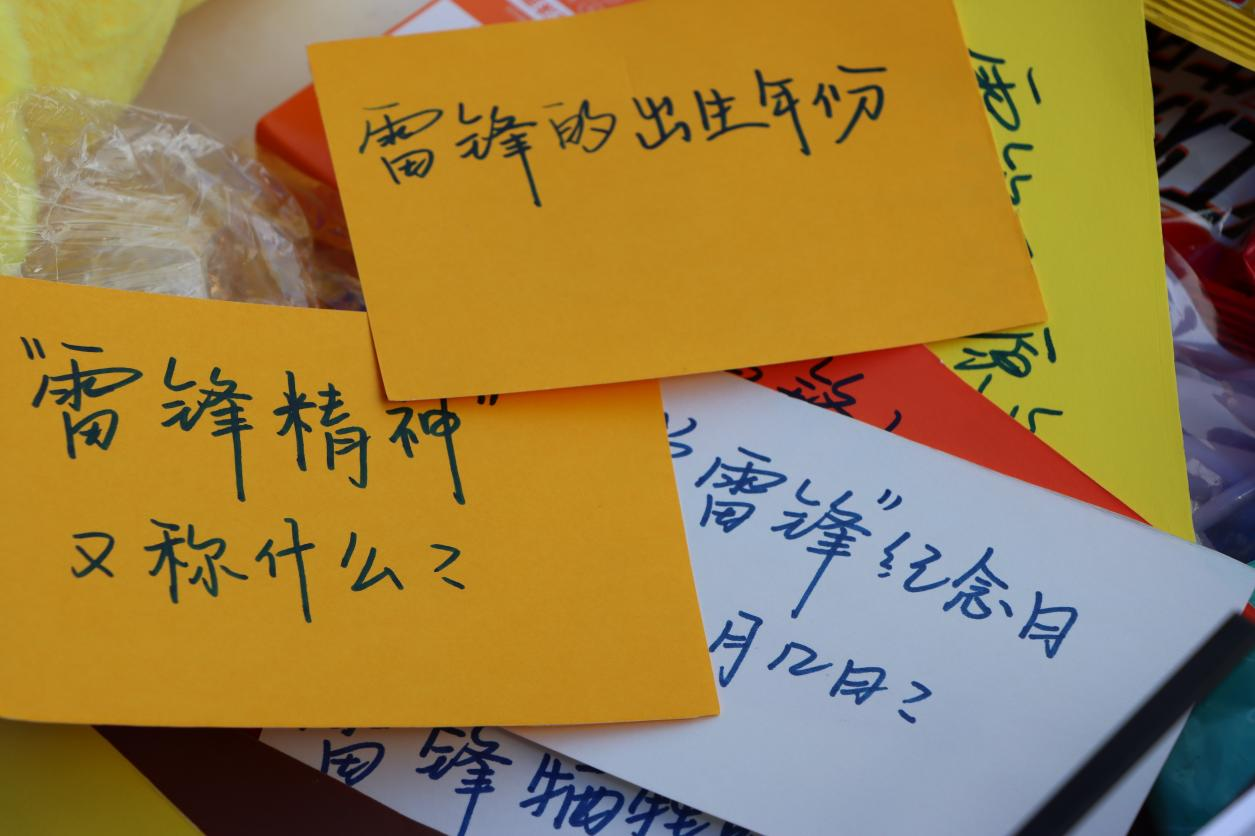 雷锋的出生年份
"雷锋精神"
又称什么?
雷锋"纪念日
月几日?
雷锋牺牲